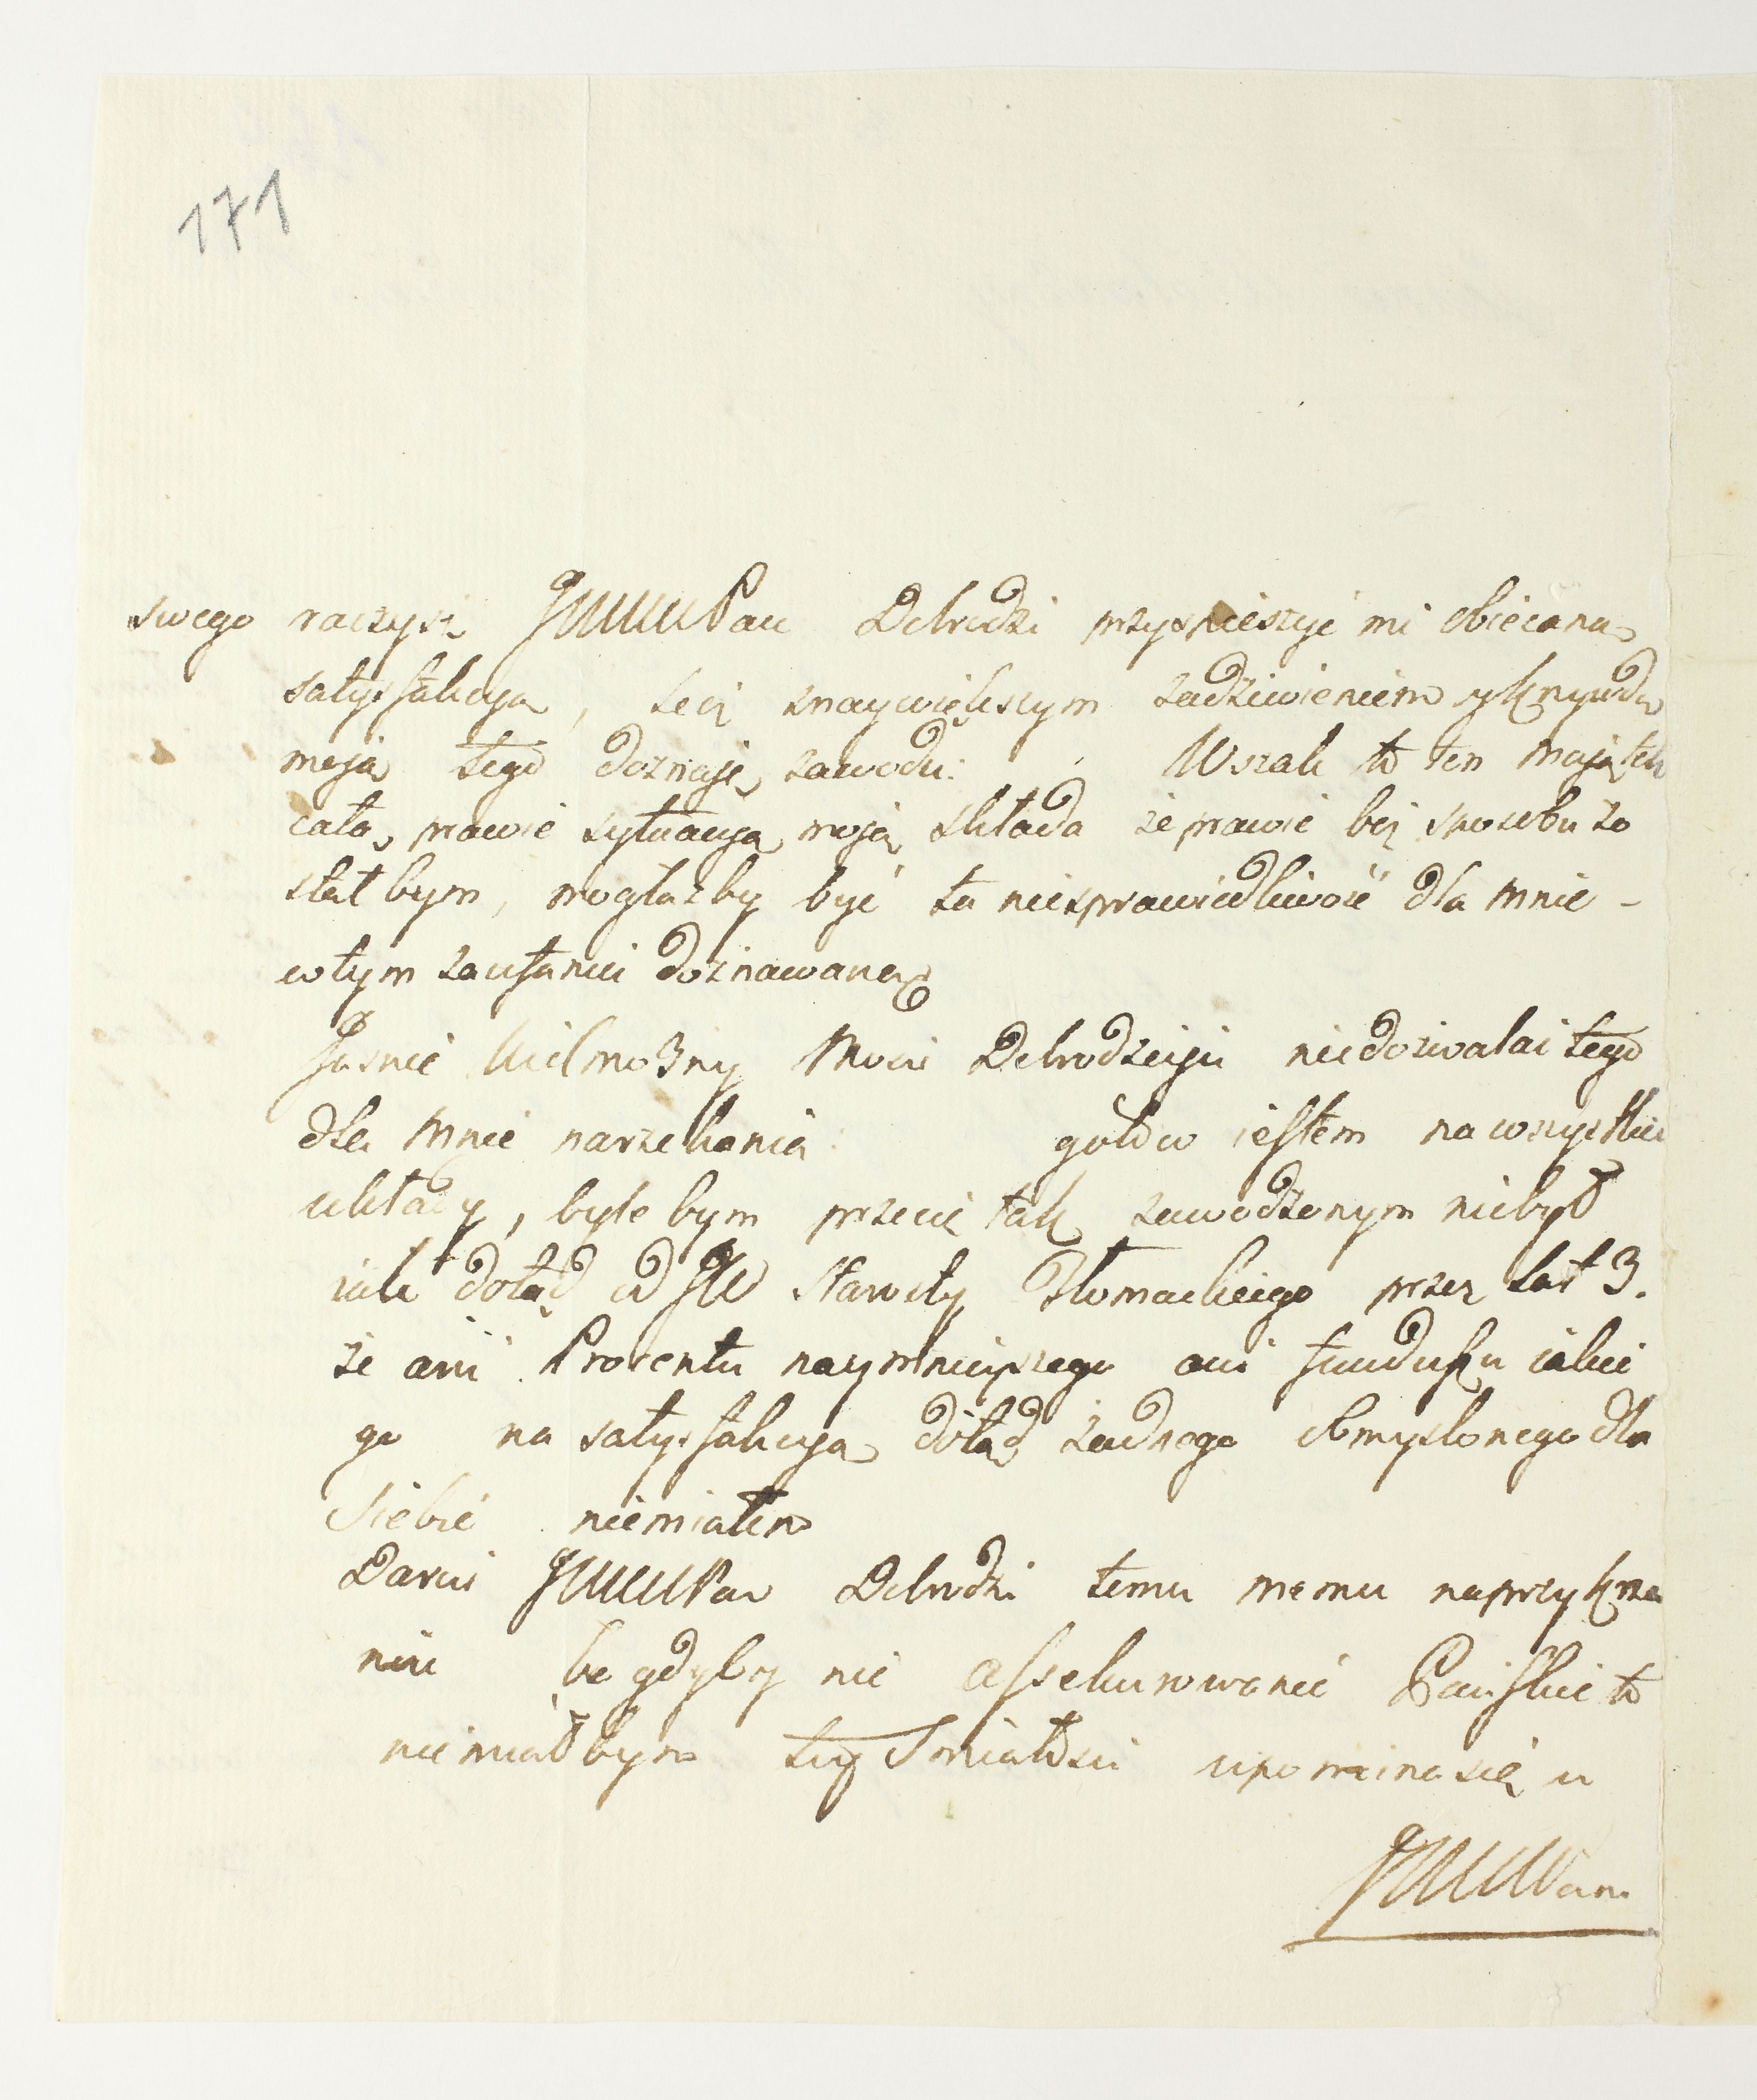 171
swego raczysz JWWWPan Dobrodzi przyspieszyć mi obiecaną
satysfakcyą, lecz znaywiększym zadziwieniem y krzywdą
moją tego doznaję zawodu: Wszak to ten Majątek
całą prawie sytuacyą moją składa że prawie bez sposobu zo
stał bym, mogłażby być ta niesprawiedliwość dla mnie -
wtym zaufaniu doznawaną
Jaśnie Wielmożny Mości Dobrodzieju niedozwalai tego
dla mnie narzekania: gotów iestem nawszystkie
układy, byle bym przecię tak zawodzonym niebył
iak dotąd od JW Starosty Tłomackiego przez lat 3.
że ani Procentu naymnieyszego ani funduszu iakie
go na satysfakcyą dotąd żadnego obmyslonego dla
Siebie niemiałem
Daruj JWWWPan Dobrodzi temu memu naprzykrza
niu bo gdyby nie assekurowanie Pańskie to
niemiałbym tey Smiałosci upominać się u
JWWWPan